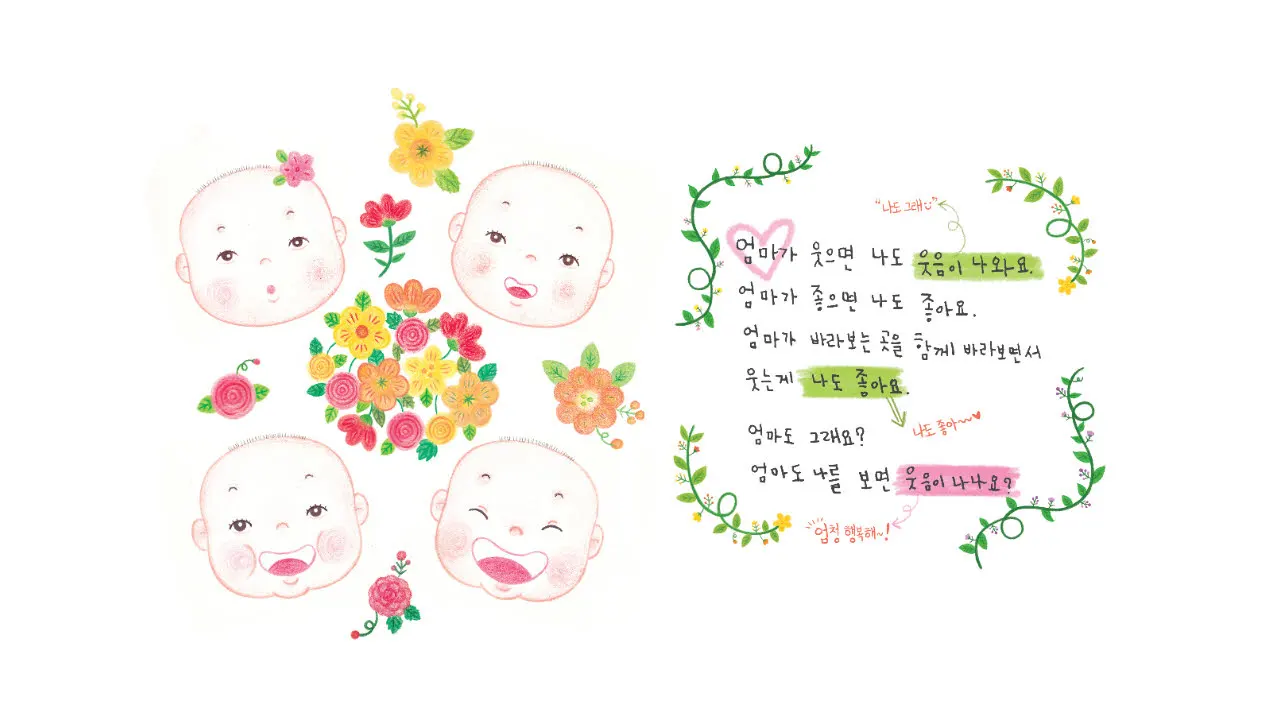 "나도 그래"
엄마가 웃으면 나도 웃음이 나와요.
엄마가 좋으면 나도 좋아요.
엄마가 바라보는 곳을 함께 바라보면서
웃는게 나도 좋아요.
나도 좋아~~♥
엄마도 그래요?
엄마도 나를 보면 웃음이 나나요?
엄청 행복해~!